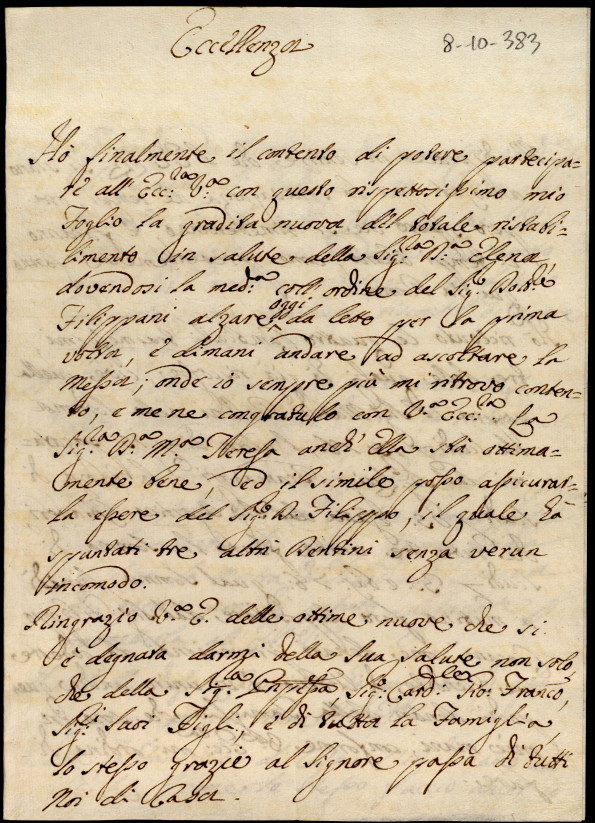 Eccellenza
8-10-383
Hò finalmente il contento di potere partecipa-
re all' Ecc:za V:ra con questo rispettosissimo mio
Foglio la gradita nuova dell totale ristabi-
limento in salute della Sig:ra D:a Elena
dovendosi la med:a coll' ordine del Sig:r Dott:re
Filippani alzare oggi da letto per la prima
volta, e dimani andare ad ascoltare la
Messa; onde io sempre più mi ritrovo conten-
to, e me ne congratulo con V:ra Ecc:za. La
Sig:ra D:a M:a Teresa anch' Ella stà ottima-
mente bene, ed il simile posso assicurar-
la essere del Sig:r D. Filippo, il quale hà
spuntati tre altri Dentini senza verun
incomodo.
Ringrazio V:ra E. delle ottime nuove che si
è degnata darmi della sua salute non solo,
che della Sig:ra Sig:r Card:le Gio: Franco,
Sig:ri suoi Figli, e di tutta la Famiglia,
lo stesso grazie al Signore passa di tutti
Noi di Casa.